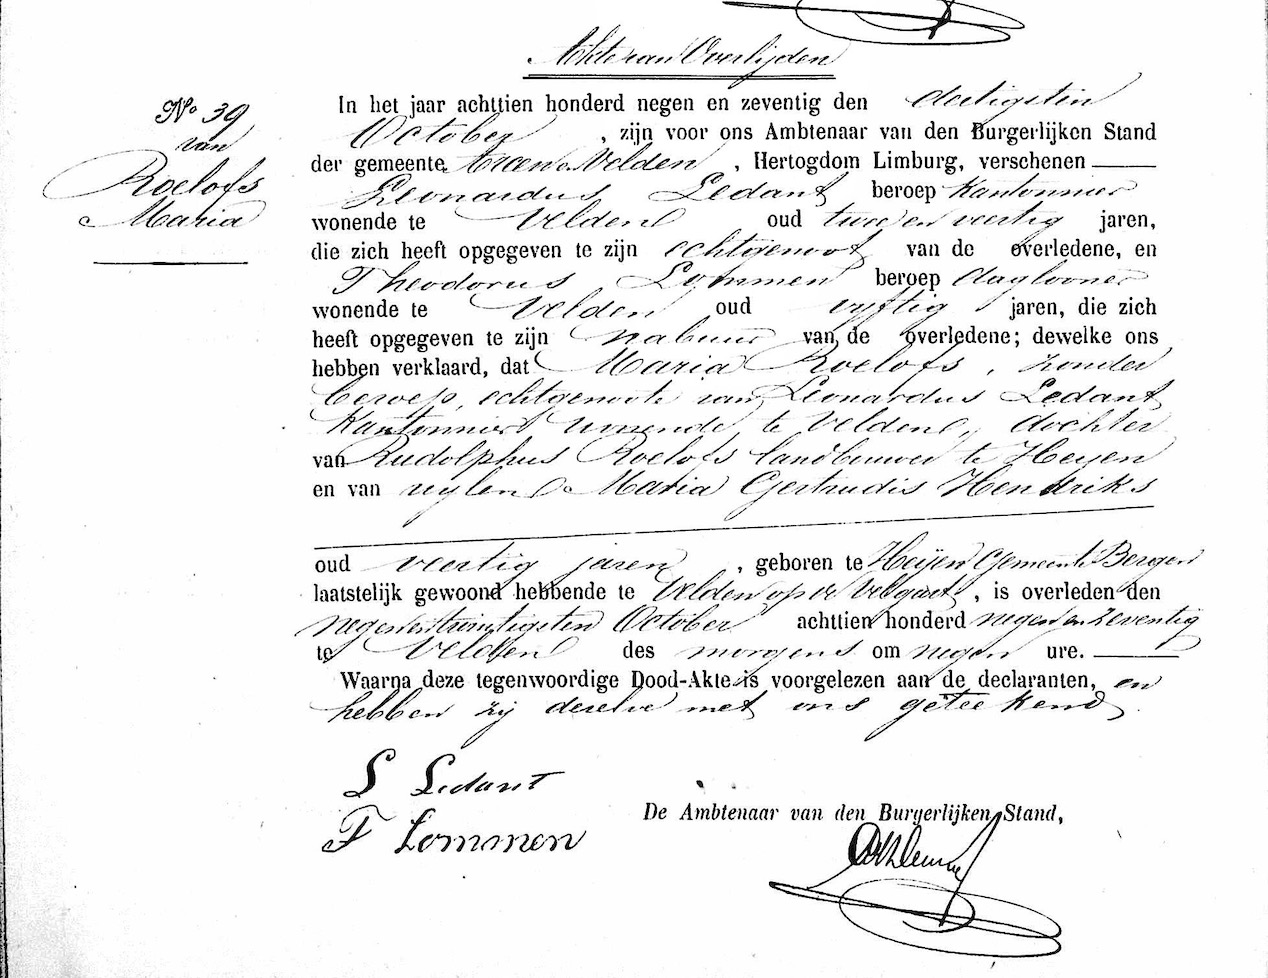 Akte van Overlijden
No 39
van
Roelofs
Maria
In het jaar achttien honderd negen en zeventig den dertigsten
October , zijn voor ons Ambtenaar van den Burgerlijken Stand
der gemeente Arcen en Velden , Hertogdom Limburg, verschenen
Leonardus Ledant beroep Kantonnier
wonende te Velden oud twee en veertig jaren,
die zich heeft opgegeven te zijn echtgenoot van de overledene, en
Theodorus Lommen beroep daglooner
wonende te Velden oud vyftig jaren, die zich
heeft opgegeven te zijn nabuur van de overledene; dewelke ons
hebben verklaard, dat Maria Roelofs , zonder
beroep, echtgenoote van Leonardus Ledant
Kantonnier wonende te Velden, dochter
van Rudolphus Roelofs landbouwer te Heyen
en van wylen Maria Gertrudis Hendriks
oud veertig jaren , geboren te Heijen Gemeente Bergen
laatstelijk gewoond hebbende te Velden op de , is overleden den
negenentwintigsten October achttien honderd negen en zeventig
te Velden des morgens om negen ure.
Waarna deze tegenwoordige Dood-Akte is voorgelezen aan de declaranten, en
hebben zij dezelve met ons geteekend.
L Ledant
F Lommen
De Ambtenaar van den Burgerlijken Stand,